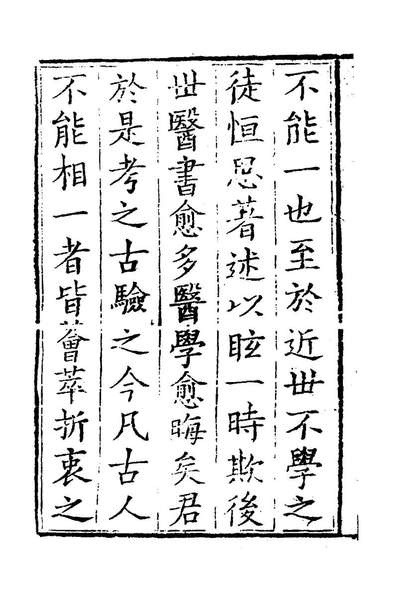 不能一也至於近世不學之
徒恒思著述以眩一時欺後
世醫書愈多醫學愈晦矣君
於是考之古驗之今凡古人
不能相一者皆薈萃折衷之